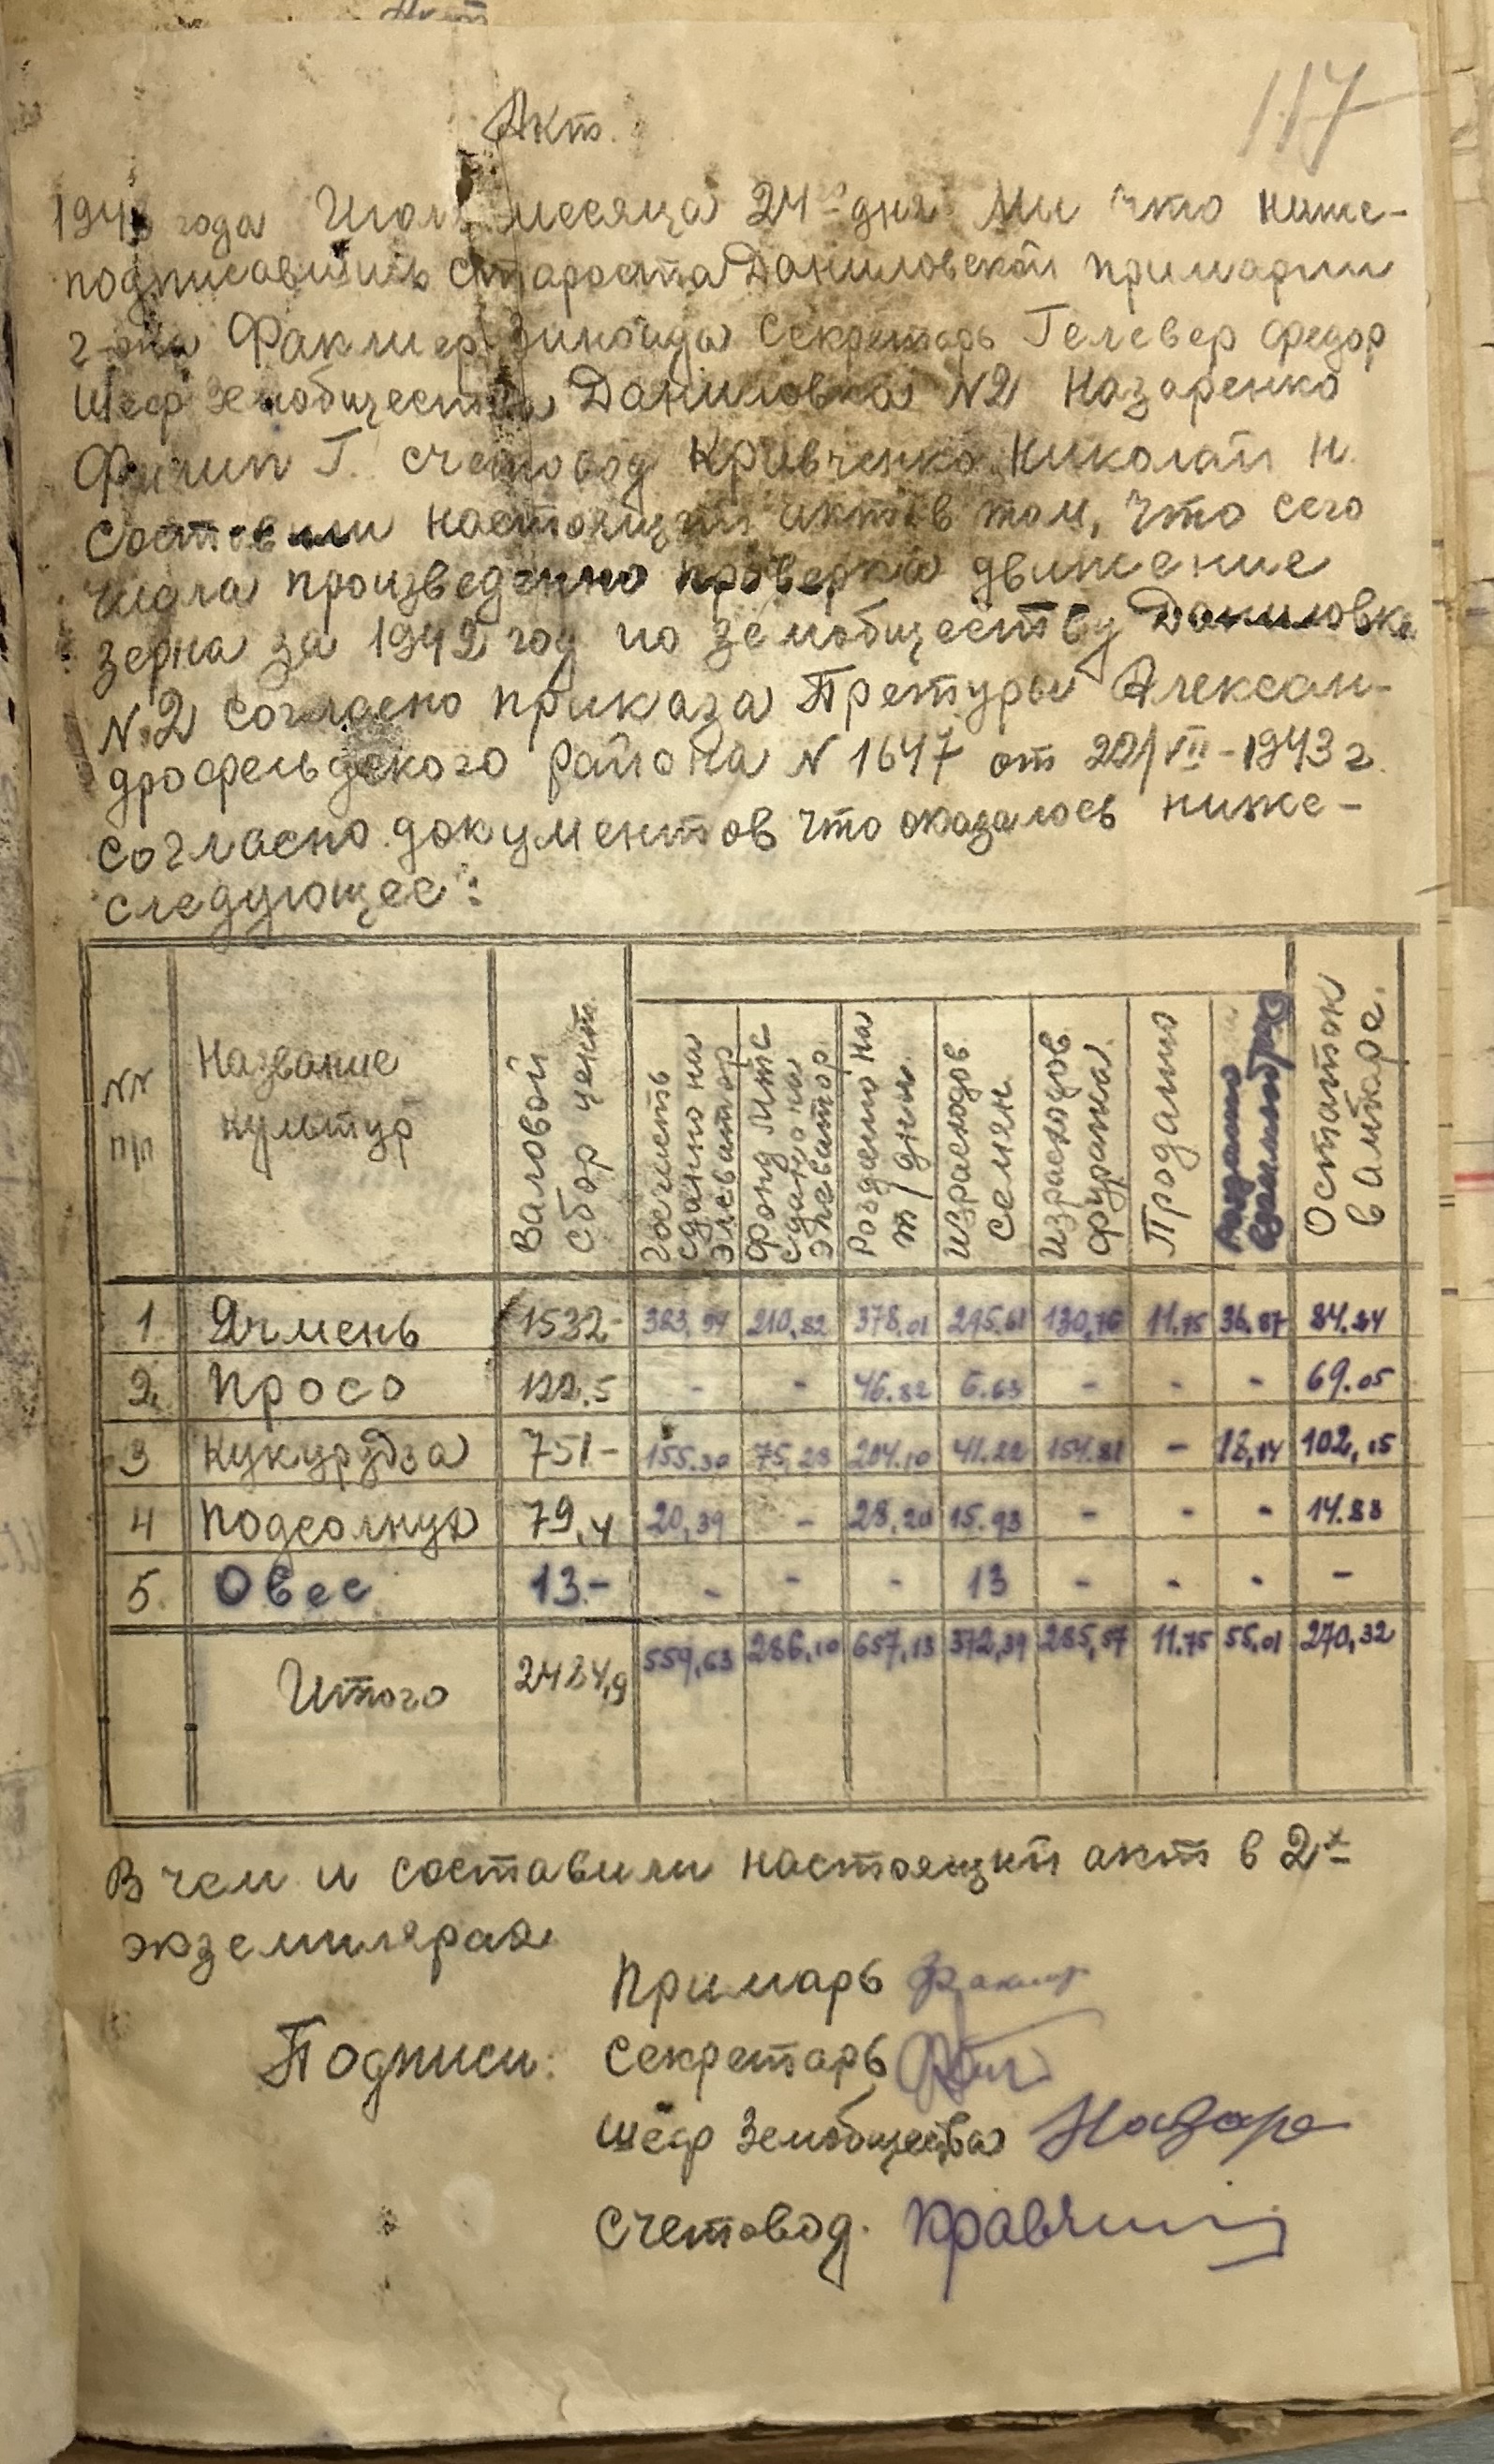 117
Акт.
1943 года Июля месяца 24го дня Мы что ниже-
подписавшись староста Даниловской примарии
г-ока Факлиер Зиноида Секретарь Гелевер Федор
Шеф Земобщества Даниловка N2 Назаренко
Филип Г. счетовод Кривченко Николай Н.
Составили настоящий акт в том, что сего
числа произведенно проверка движение
зерна за 1942 год по земобществу Даниловка
N.2 согласно приказа Претуры Алексан-
дрофельдского района N 1647 от 22/VII-1943 г.
согласно документов что оказалось ниже-
следующее:
NN п/п | Название культур | Валовой сбор цент. | Госчасть сданно на элеватор | Фонд Мтс сдано на элеватор | Роздано на т/дни. | израсходов. Семян | израсходов. фуража. | Продано | Остаток в амбаре.
1 | Ячмень | 1532- | 383,94 | 210,82 | 378,01 | 295.61 | 130,76 | 11.75 | 36.87 | 84.24
2. | Просо | 122.5 | - | - | 46.82 | 6.63 | - | - | - | 69.05
3 | Кукурудза | 751- | 155.30 | 75,28 | 204.10 | 41.22 | 154.81 | - | 18,14 | 102,15
4 | Подсолнух | 79,4 | 20,39 | - | 28,20 | 15.93 | - | - | - | 14.88
5. | Овес | 13- | - | - | - | 13 | - | - | - | -
Итого | 2484,9 | 559,63 | 286,10 | 657,13 | 372,39 | 285,57 | 11.75 | 55,01 | 270,32
В чем и составили настоящий акт в 2х
экземплярах
Примарь Факлиер
Подписи: Секретарь
Шеф Земобщества Назаре
Счетовод.